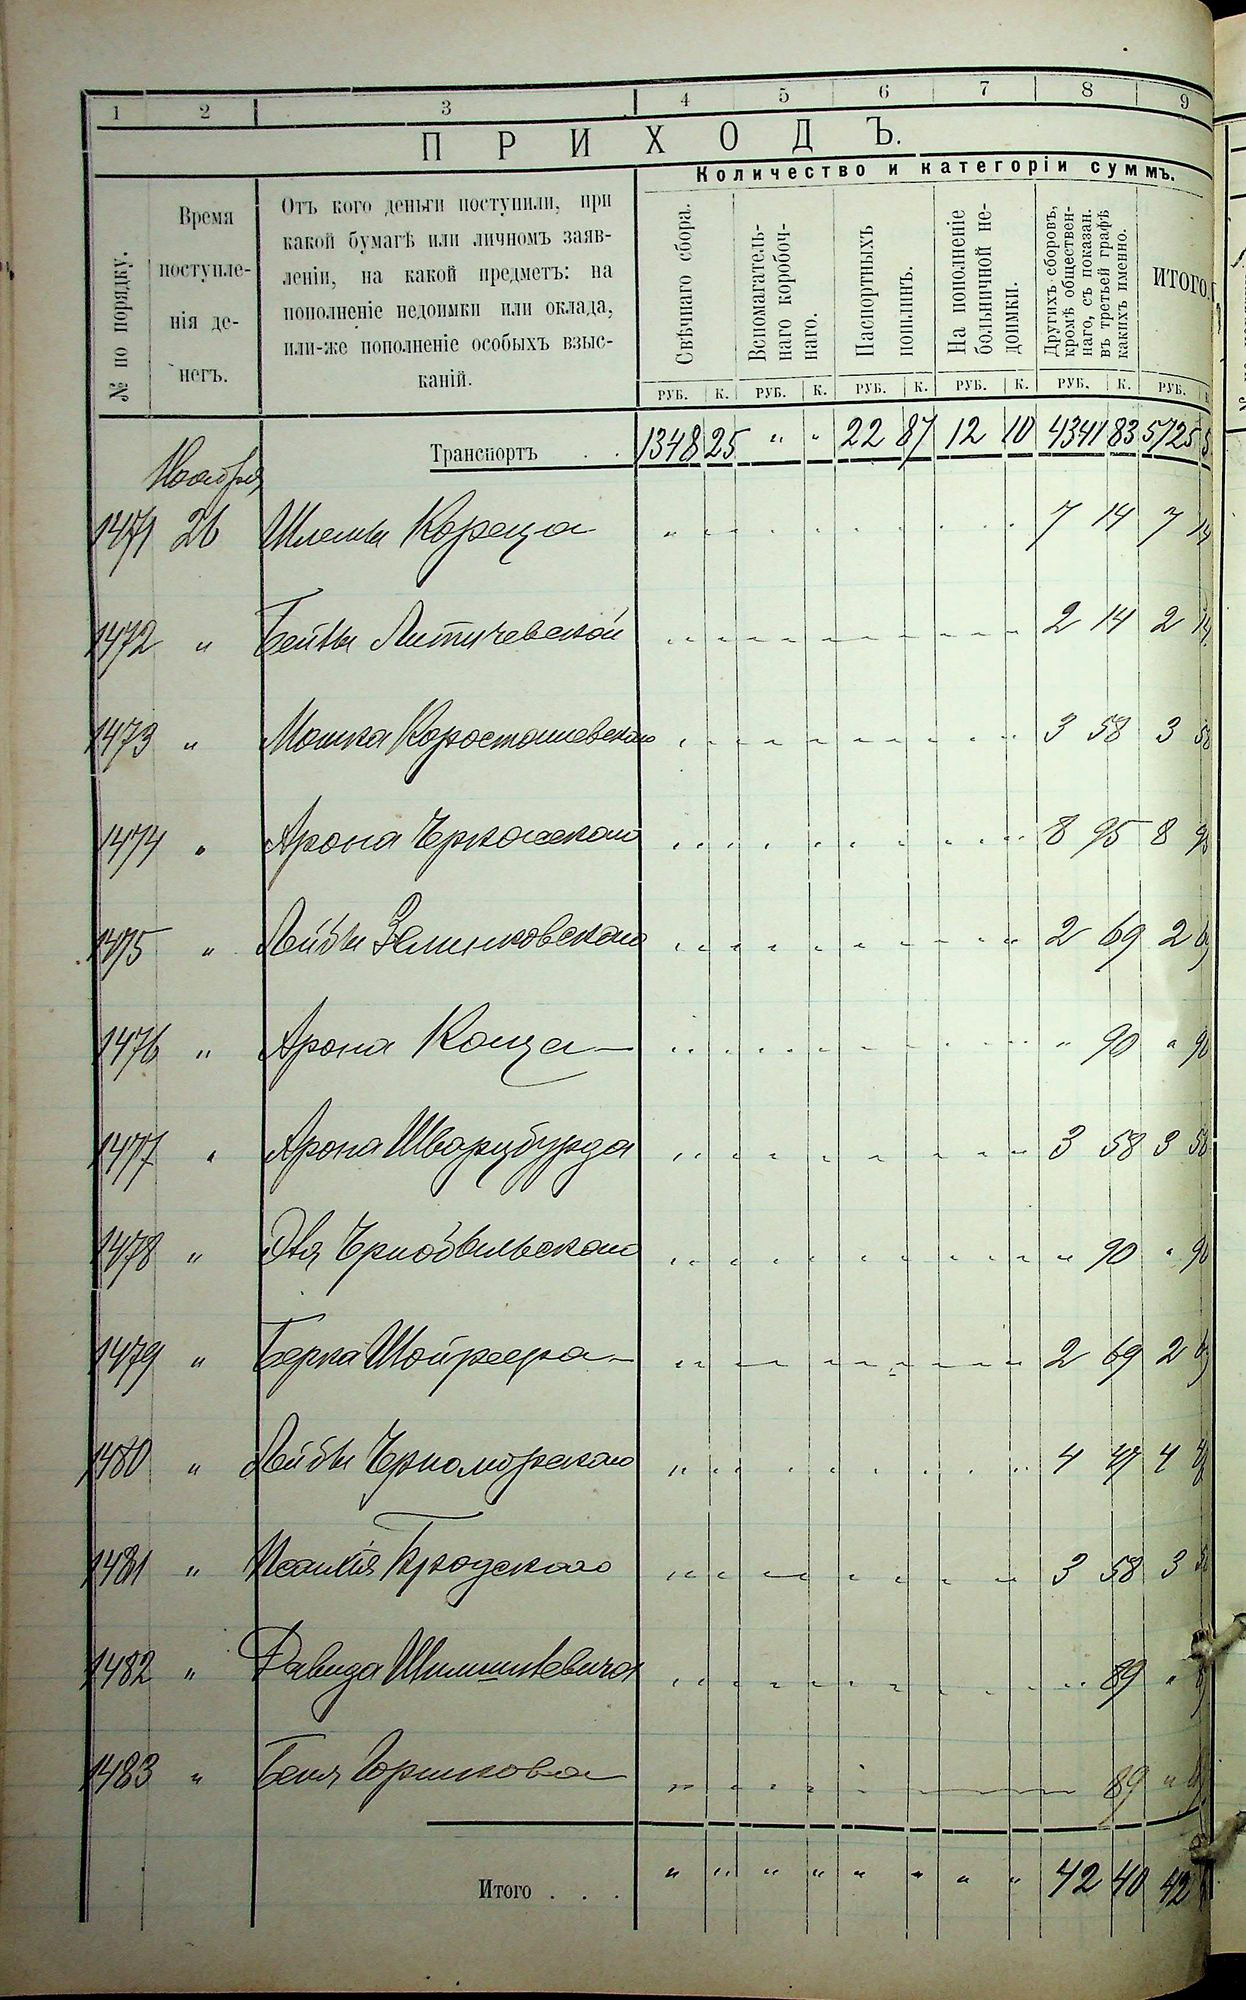 1 2 3 4 5 6 7 8 9
ПРИХОДЪ.
Количество и категоріи суммъ.
№ по порядку.
Время
поступле-
нія де-
негъ.
Отъ кого деньги поступили, при
какой бумагѣ или личномъ заяв-
леніи, на какой предметъ: на
пополненіе недоимки или оклада,
или-же пополненіе особыхъ взыс-
каній.
Свѣчнаго сбора.
Вспомагатель-
наго коробоч-
наго.
Паспортныхъ
пошлинъ.
На пополненіе
больничной не-
доимки.
Другихъ сборовъ,
кромѣ обществен-
наго, съ показан.
въ третьей графѣ
какихъ именно.
ИТОГО.
РУБ. К. РУБ. К. РУБ. К. РУБ. К. РУБ. К. РУБ.
Транспортъ . . 1348 25 " " 22 87 12 10 4341 83 5725
Ноября
1471 26 Шлемы Кореца " 7 14 7 14
1472 " Бейлы Литичевской " " 2 14 2 14
1473 " Мошка Коростошевскаго 3 58 3 58
1474 " Арона Черкасскаго 8 95 8 95
1475 " Лейбы Зелинковскаго 2 69 2 69
1476 " Арона Каца " 90 " 90
1477 " Арона Шварцбурда 3 58 3 58
1478 " Чернобыльскаго " 90 " 90
1479 " Берка 2 69 2 69
1480 " Лейбы Черноморскаго 4 47 4 47
1481 " Бродскаго 3 58 3 58
1482 " Давида " 89 " 89
1483 " Горшкова 89 " 89
Итого . . . " " " " " " " " 42 40 42